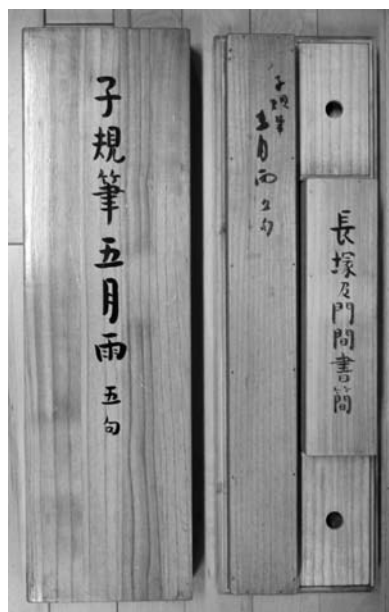 子規筆五月雨 五句
子規筆
五月雨五句
長塚及門間書簡